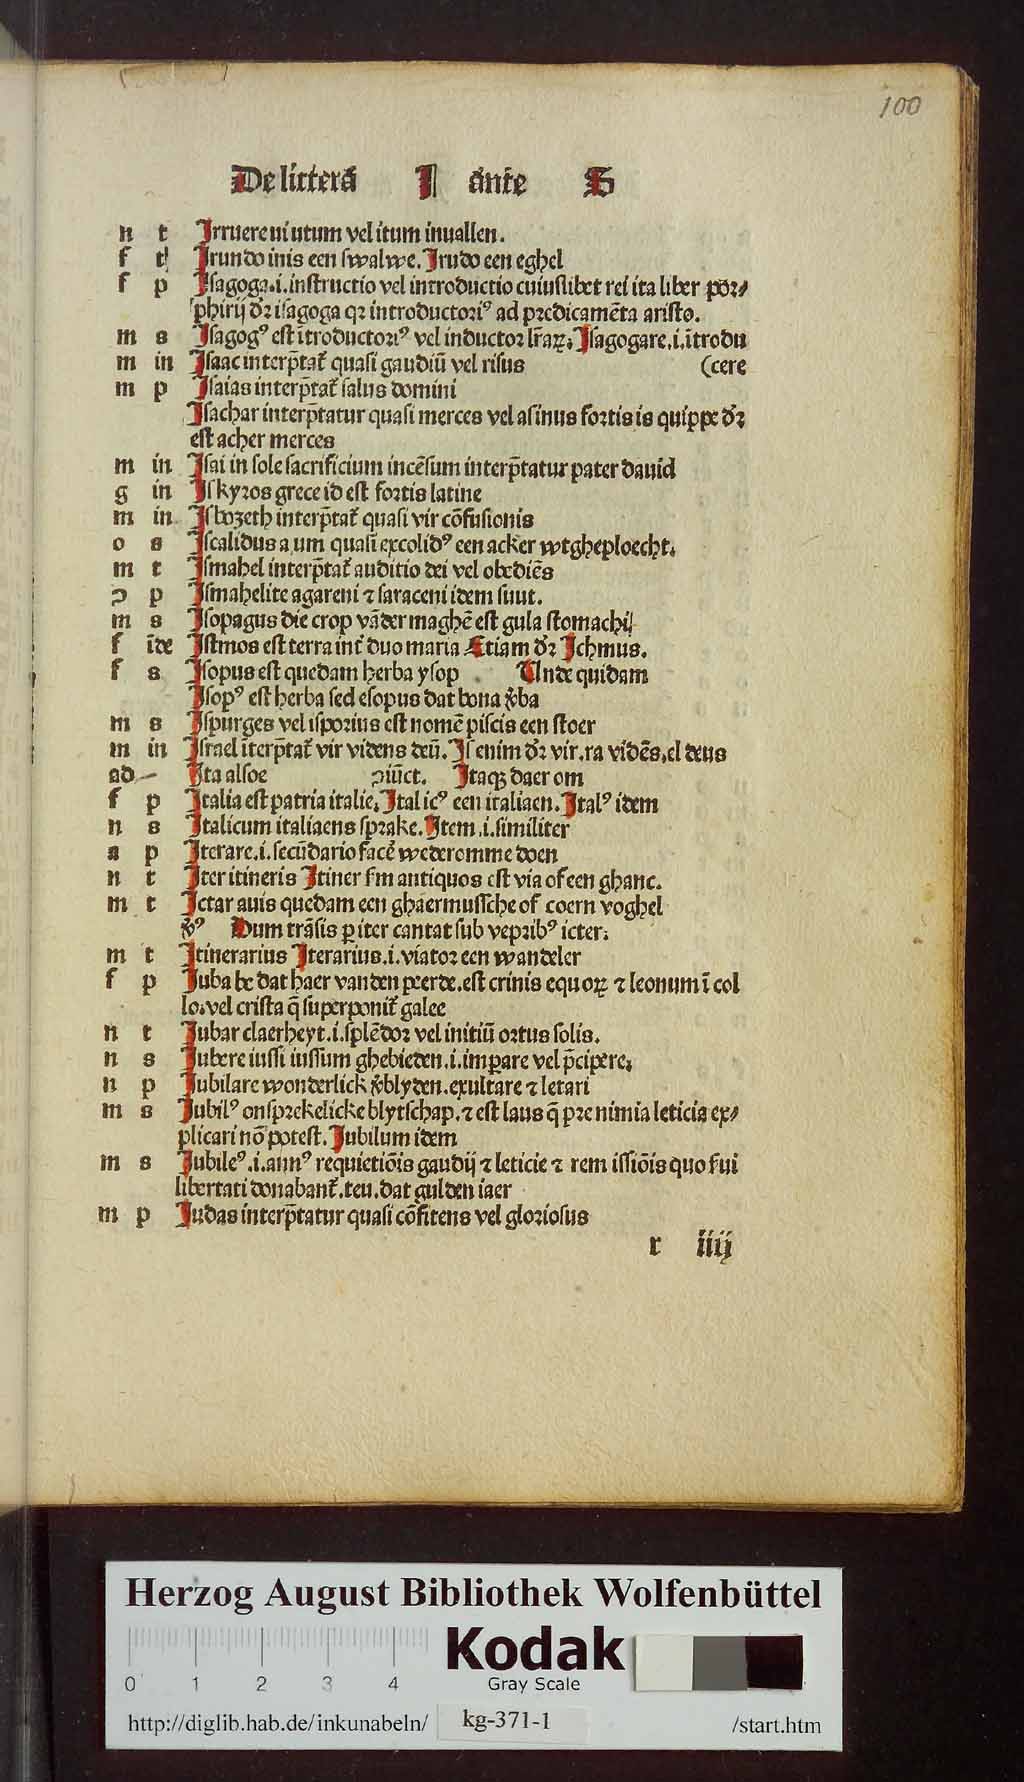 100
De litterā I ante S
n t Irruere ui utum vel itum inuallen.
f t Irundo inis een swalwe. Irudo een eghel
f p Isagoga .i. instructio vel introductio cuiuslibet rei ita liber por⸗
phirij dꝛ isagoga qꝛ introductoriꝰ ad predicamēta aristo.
m s Isagogꝰ est ītroductoriꝰ vel inductor lr̄aꝝ. Isagogare .i. ītrodu
m in Isaac interp̄tat᷑ quasi gaudiū vel risus (cere
m p Isaias interp̄tat᷑ salus domini
Isachar interp̄tatur quasi merces vel asinus fortis is quippe dꝛ
est acher merces
m in Isai in sole sacrificium incēsum interp̄tatur pater dauid
g in Iskyros grece id est fortis latine
m in Isbozeth interp̄tat᷑ quasi vir cōfusionis
o s Iscalidus a um quasi excolidꝰ een acker wtgheploecht.
m t Ismahel interp̄tat᷑ auditio dei vel obediēs
ↄ p Ismahelite agareni ⁊ saraceni idem suut.
m s Isopagus die crop vāder maghē est gula stomachi
f īde Istmos est terra int᷑ duo maria Etiam dꝛ Ichmus.
f s Isopus est quedam herba ysop . Unde quidam
Isopꝰ est herba sed esopus dat bona v̾ba
m s Ispurges vel isporius est nomē piscis een stoer
m in Israel īterp̄tat᷑ vir videns deū. Is enim dꝛ vir. ra vidēs. el deus
ad— Ita alsoe ↄiūct. Itaqꝫ daer om
f p Italia est patria italie. Italicꝰ een italiaen. Italꝰ idem
n s Italicum italiaens sprake. Item .i. similiter
a p Iterare .i. secūdario facē wederomme doen
n t Iter itineris Itiner s̄m antiquos est via of een ghanc.
m t Ictar auis quedam een ghaermussche of coern voghel
v̾ꝰ Dum trāsis p iter cantat sub vepribꝰ icter.
m t Itinerarius Iterarius .i. viator een wandeler
f p Iuba be dat haer vanden peerde. est crinis equoꝝ ⁊ leonum ī col
lo. vel crista q̄ superponit᷑ galee
n t Iubar claerheyt .i. splēdor vel initiū ortus solis.
n s Iubere iussi iussum ghebieden .i. imꝑare vel p̄cipere.
n p Iubilare wonderlick v̾blyden. exultare ⁊ letari
m s Iubilꝰ onsprekelicke blytschap. ⁊ est laus q̄ pre nimia leticia ex⸗
plicari nō potest. Iubilum idem
m s Iubileꝰ .i. annꝰ requietiōis gaudij ⁊ leticie ⁊ rem issiōis quo sui
libertati donabant᷑. teu. dat gulden iaer
m p Iudas interp̄tatur quasi cōfitens vel gloriosus
r iiij
Herzog August Bibliothek Wolfenbüttel
Kodak
Gray Scale
0 1 2 3 4
http://diglib.hab.de/inkunabeln/ kg-371-1 /start.htm